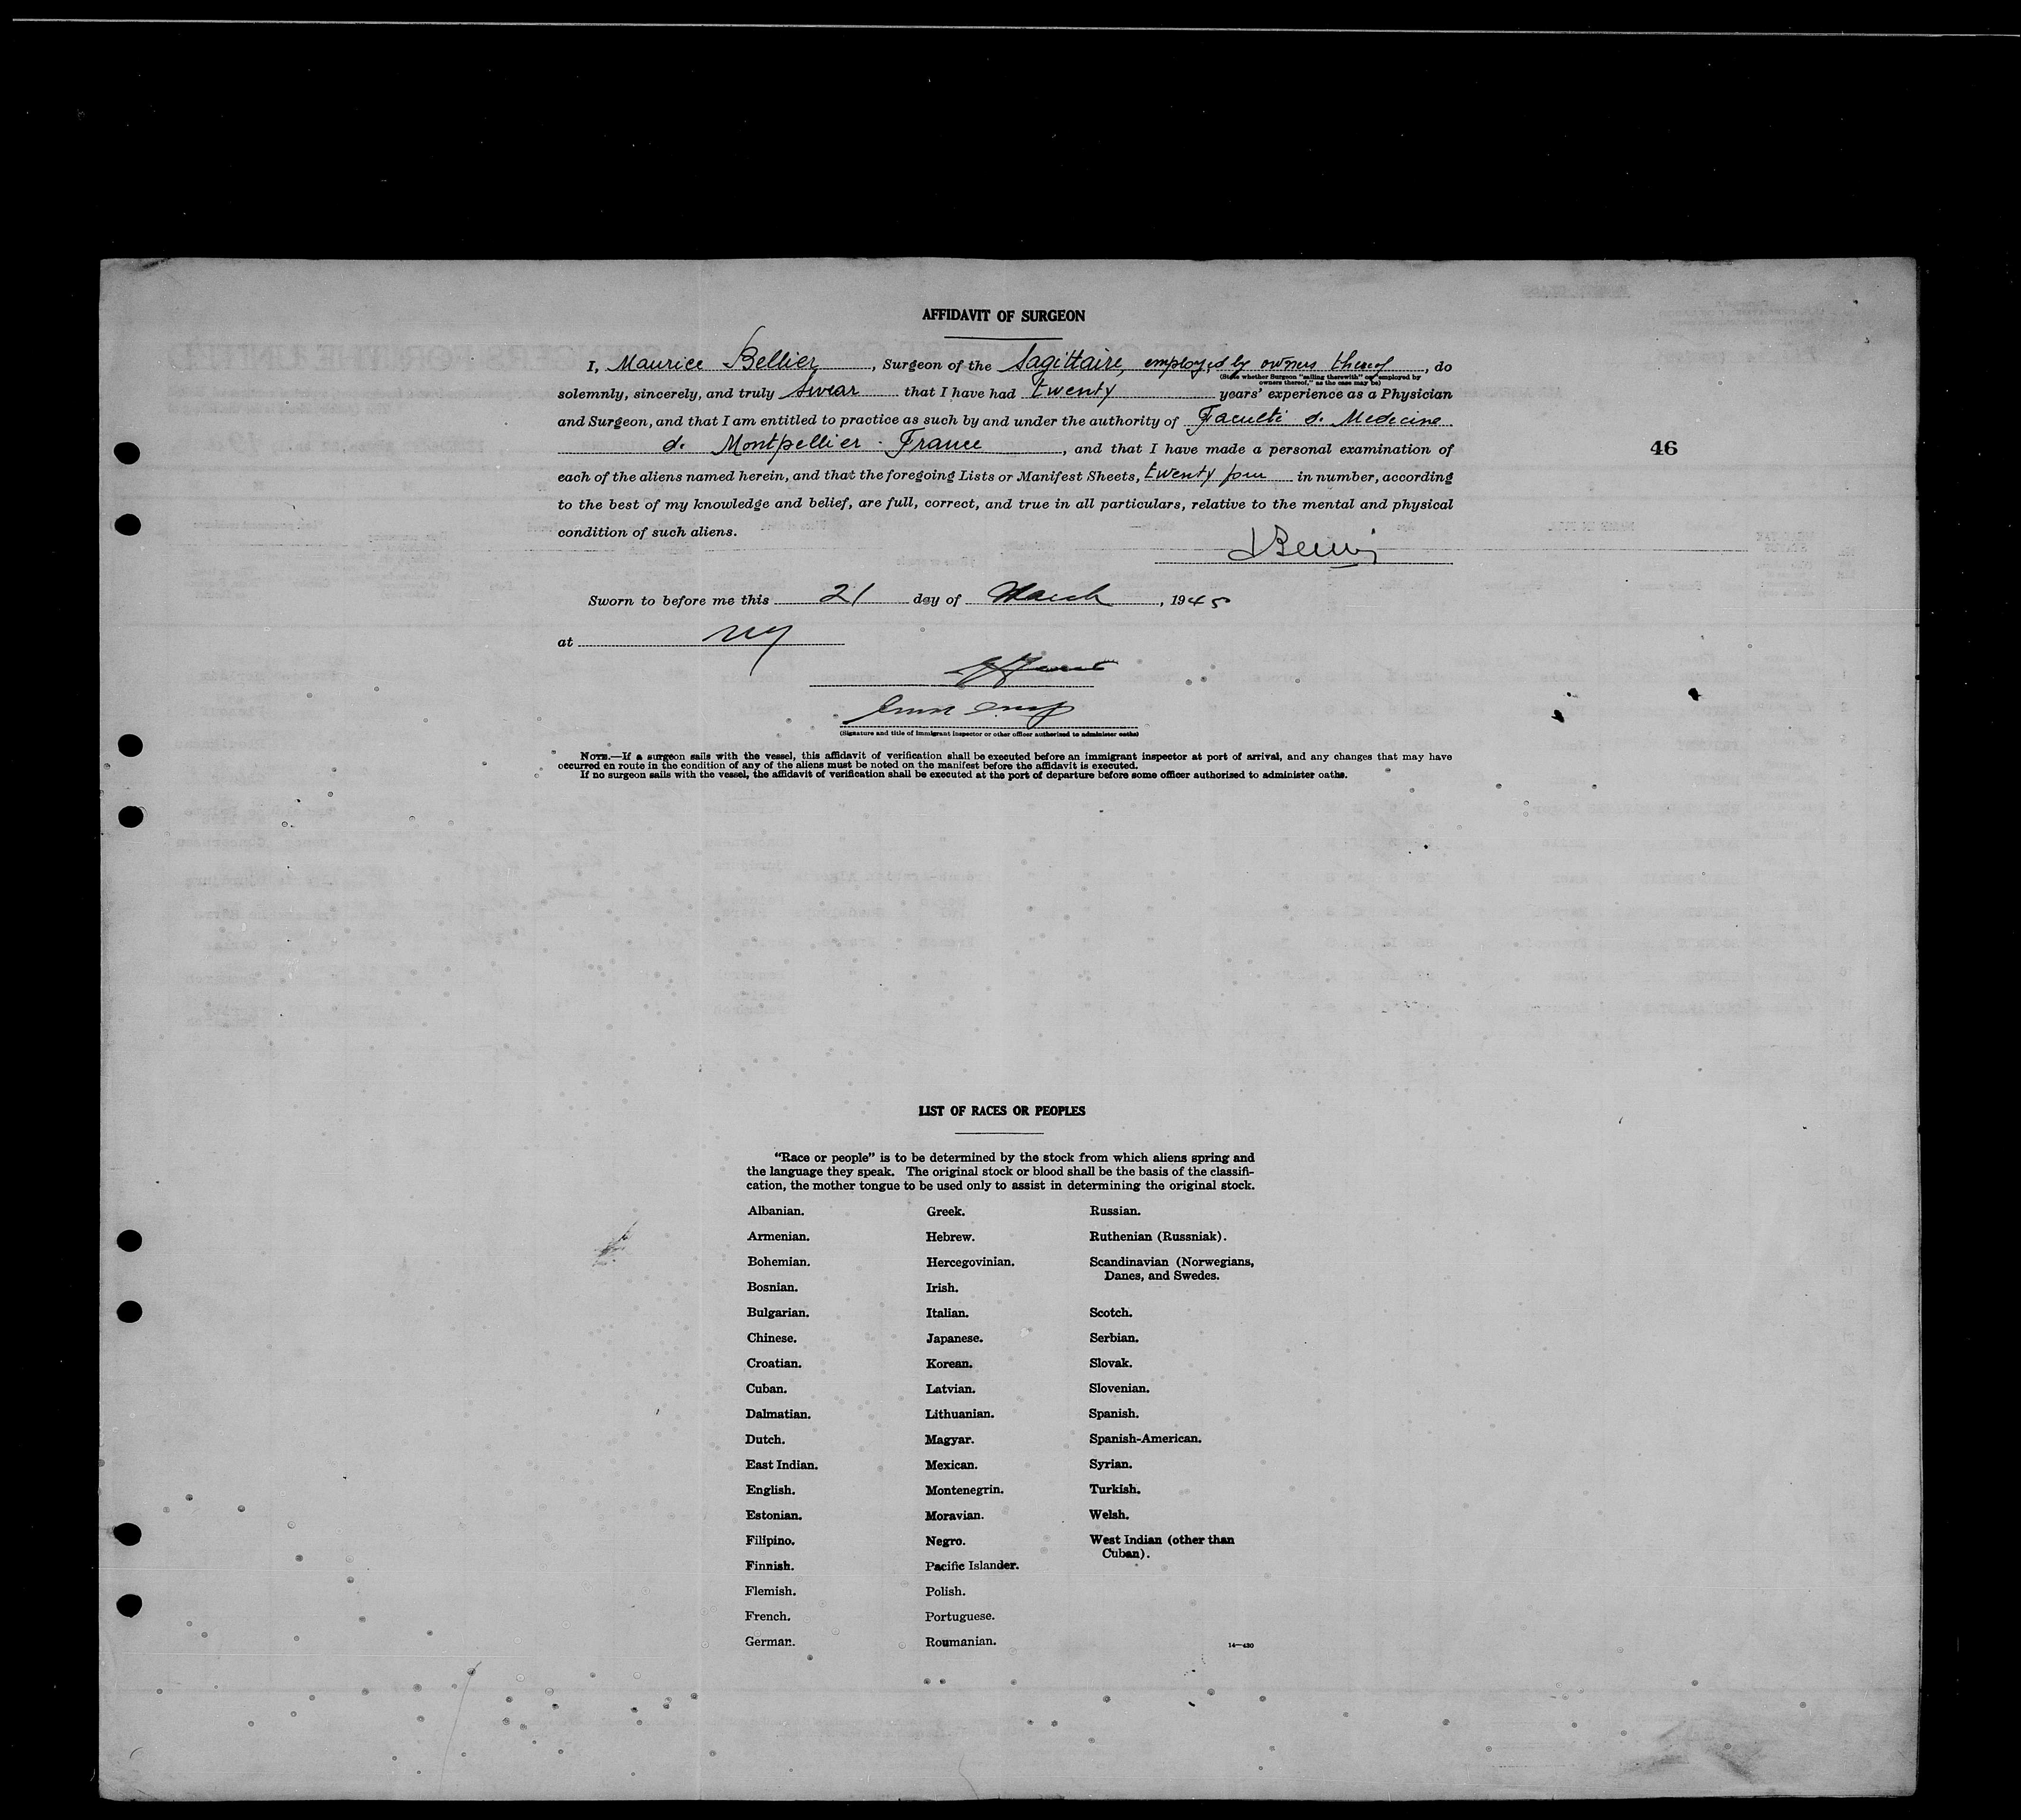 AFFIDAVIT OF SURGEON
I, Maurice Bellier, Surgeon of the Sagittaire, employed by owners thereof, do
(State whether Surgeon "sailing therewith" or "employed by
owners thereof," as the case may be)
solemnly, sincerely, and truly swear that I have had twenty years' experience as a Physician
and Surgeon, and that I am entitled to practice as such by and under the authority of Faculté de Medecine
de Montpellier - France, and that I have made a personal examination of
46
each of the aliens named herein, and that the foregoing Lists or Manifest Sheets, twenty four in number, according
to the best of my knowledge and belief, are full, correct, and true in all particulars, relative to the mental and physical
condition of such aliens.
Sworn to before me this 21 day of March, 1945
at NY
(Signature and title of immigrant inspector or other officer authorized to administer oaths)
NOTE.—If a surgeon sails with the vessel, this affidavit of verification shall be executed before an immigrant inspector at port of arrival, and any changes that may have
occurred en route in the condition of any of the aliens must be noted on the manifest before the affidavit is executed.
If no surgeon sails with the vessel, the affidavit of verification shall be executed at the port of departure before some officer authorized to administer oaths.
LIST OF RACES OR PEOPLES
"Race or people" is to be determined by the stock from which aliens spring and
the language they speak. The original stock or blood shall be the basis of the classifi-
cation, the mother tongue to be used only to assist in determining the original stock.
Albanian.
Armenian.
Bohemian.
Bosnian.
Bulgarian.
Chinese.
Croatian.
Cuban.
Dalmatian.
Dutch.
East Indian.
English.
Estonian.
Filipino.
Finnish.
Flemish.
French.
German.
Greek.
Hebrew.
Hercegovinian.
Irish.
Italian.
Japanese.
Korean.
Latvian.
Lithuanian.
Magyar.
Mexican.
Montenegrin.
Moravian.
Negro.
Pacific Islander.
Polish.
Portuguese.
Roumanian.
Russian.
Ruthenian (Russniak).
Scandinavian (Norwegians,
Danes, and Swedes.
Scotch.
Serbian.
Slovak.
Slovenian.
Spanish.
Spanish-American.
Syrian.
Turkish.
Welsh.
West Indian (other than
Cuban).
14—430